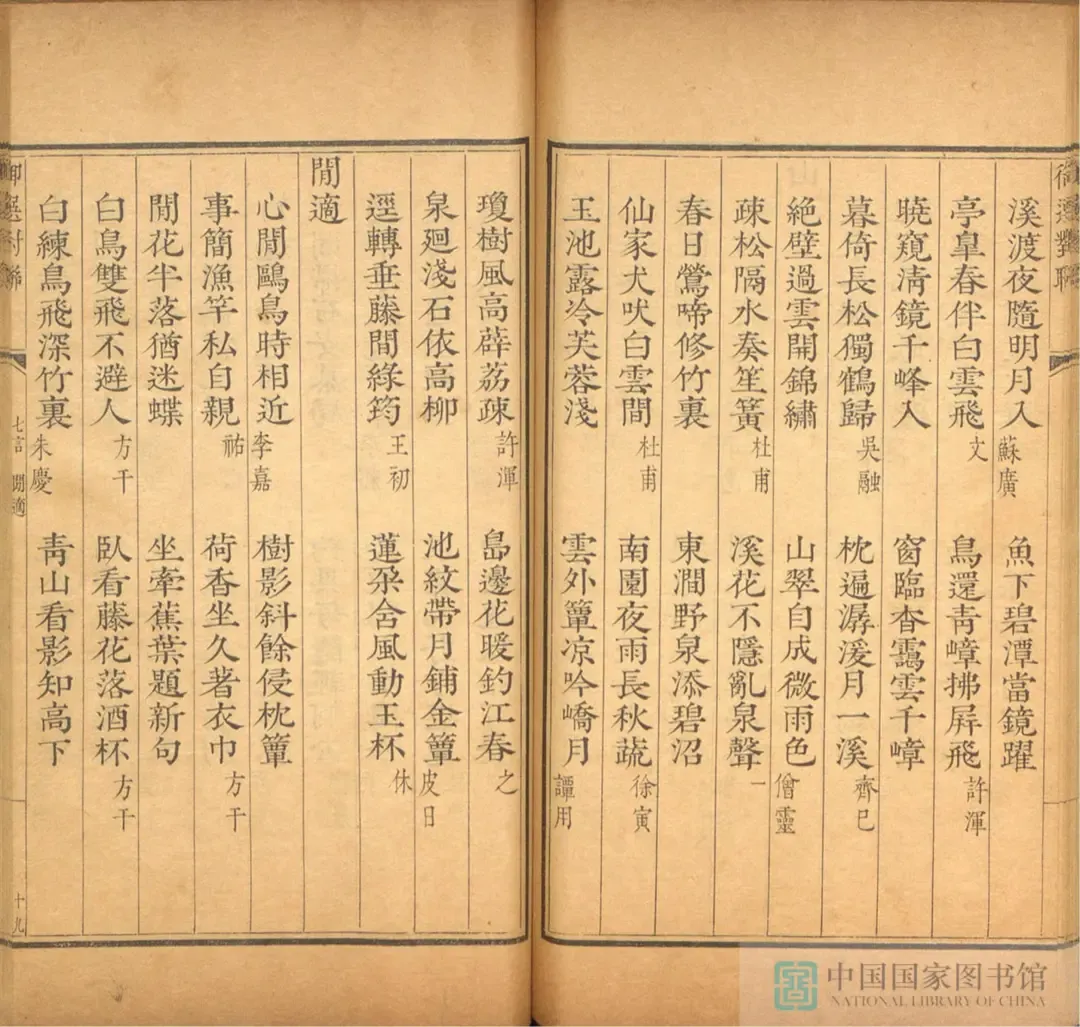 御選對聯
溪渡夜隨明月入 蘇廣 魚下碧潭當鏡躍
亭皐春伴白雲飛 文 鳥還靑嶂拂屛飛 許渾
曉窺淸鏡千峰入 窗臨杳靄雲千嶂
暮倚長松獨鶴歸 吳融 枕遍潺湲月一溪 齊己
絶壁過雲開錦繡 山翠自成微雨色 僧靈
疎松隔水奏笙簧 杜甫 溪花不隱亂泉聲 一
春日鶯啼修竹裏 東澗野泉添碧沼
仙家犬吠白雲間 杜甫 南園夜雨長秋蔬 徐寅
玉池露冷芙蓉淺 雲外簟凉吟嶠月 譚用
瓊樹風高薜荔疎 許渾 島邊花暖釣江春 之
泉廻淺石依高柳 池紋帶月鋪金簟 皮日
逕轉垂藤間綠筠 王初 蓮朶含風動玉杯 休
閒適
心閒鷗鳥時相近 李嘉 樹影斜餘侵枕簟
事簡漁竿私自親 祐 荷香坐久著衣巾 方干
閒花半落猶迷蝶 坐牽蕉葉題新句
白鳥雙飛不避人 方干 臥看藤花落酒杯 方干
白練鳥飛深竹裏 朱慶 靑山看影知高下
御選對聯 七言 閒適 十九
中国国家图书馆
NATIONAL LIBRARY OF CHINA